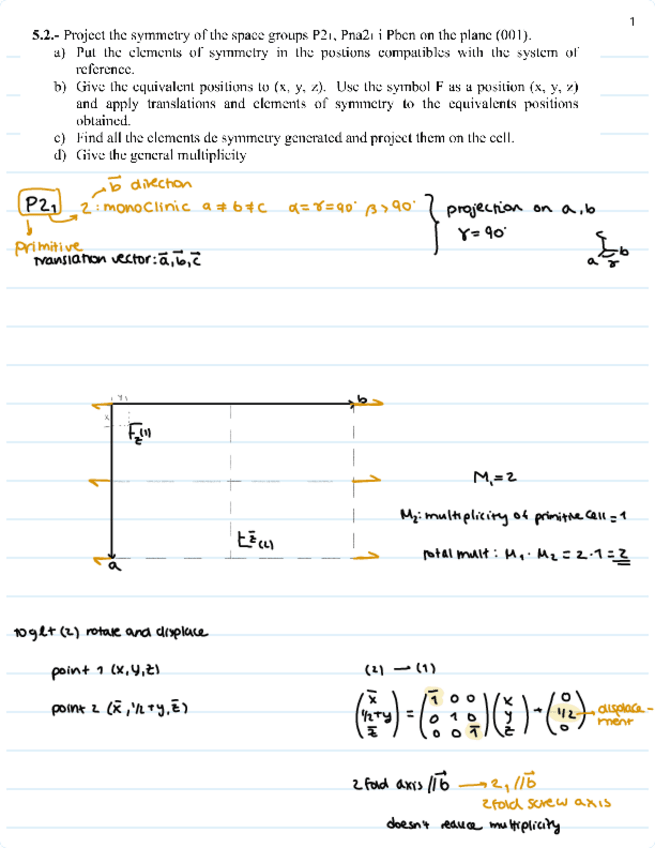 1
5.2.- Project the symmetry of the space groups P2₁, Pna2₁ i Pbcn on the plane (001).
a) Put the elements of symmetry in the postions compatibles with the system of
reference.
b) Give the equivalent positions to (x, y, z). Use the symbol F as a position (x, y, z)
and apply translations and elements of symmetry to the equivalents positions
obtained.
c) Find all the elements de symmetry generated and project them on the cell.
d) Give the general multiplicity
b⃗ direction
P2₁ 2: monoclinic a ≠ b ≠ c α = γ = 90° β > 90° } projection on a, b
γ = 90°
primitive
translation vector: a⃗, b⃗, c⃗
a b γ
b
F z (1)
M₁ = 2
M₂: multiplicity of primitive cell = 1
z̄ (2)
total mult: M₁ · M₂ = 2 · 1 = 2
a
to get (2) rotate and displace
point 1 (x, y, z) (2) — (1)
point 2 (x̄, 1/2 + y, z̄)
(x̄ 1/2+y z̄) = (1̄ 0 0 0 1 0 0 0 1̄) (x y z) + (0 1/2 0) displace-
ment
2 fold axis // b⃗ → 2₁ // b⃗
2 fold screw axis
doesn't reduce multiplicity